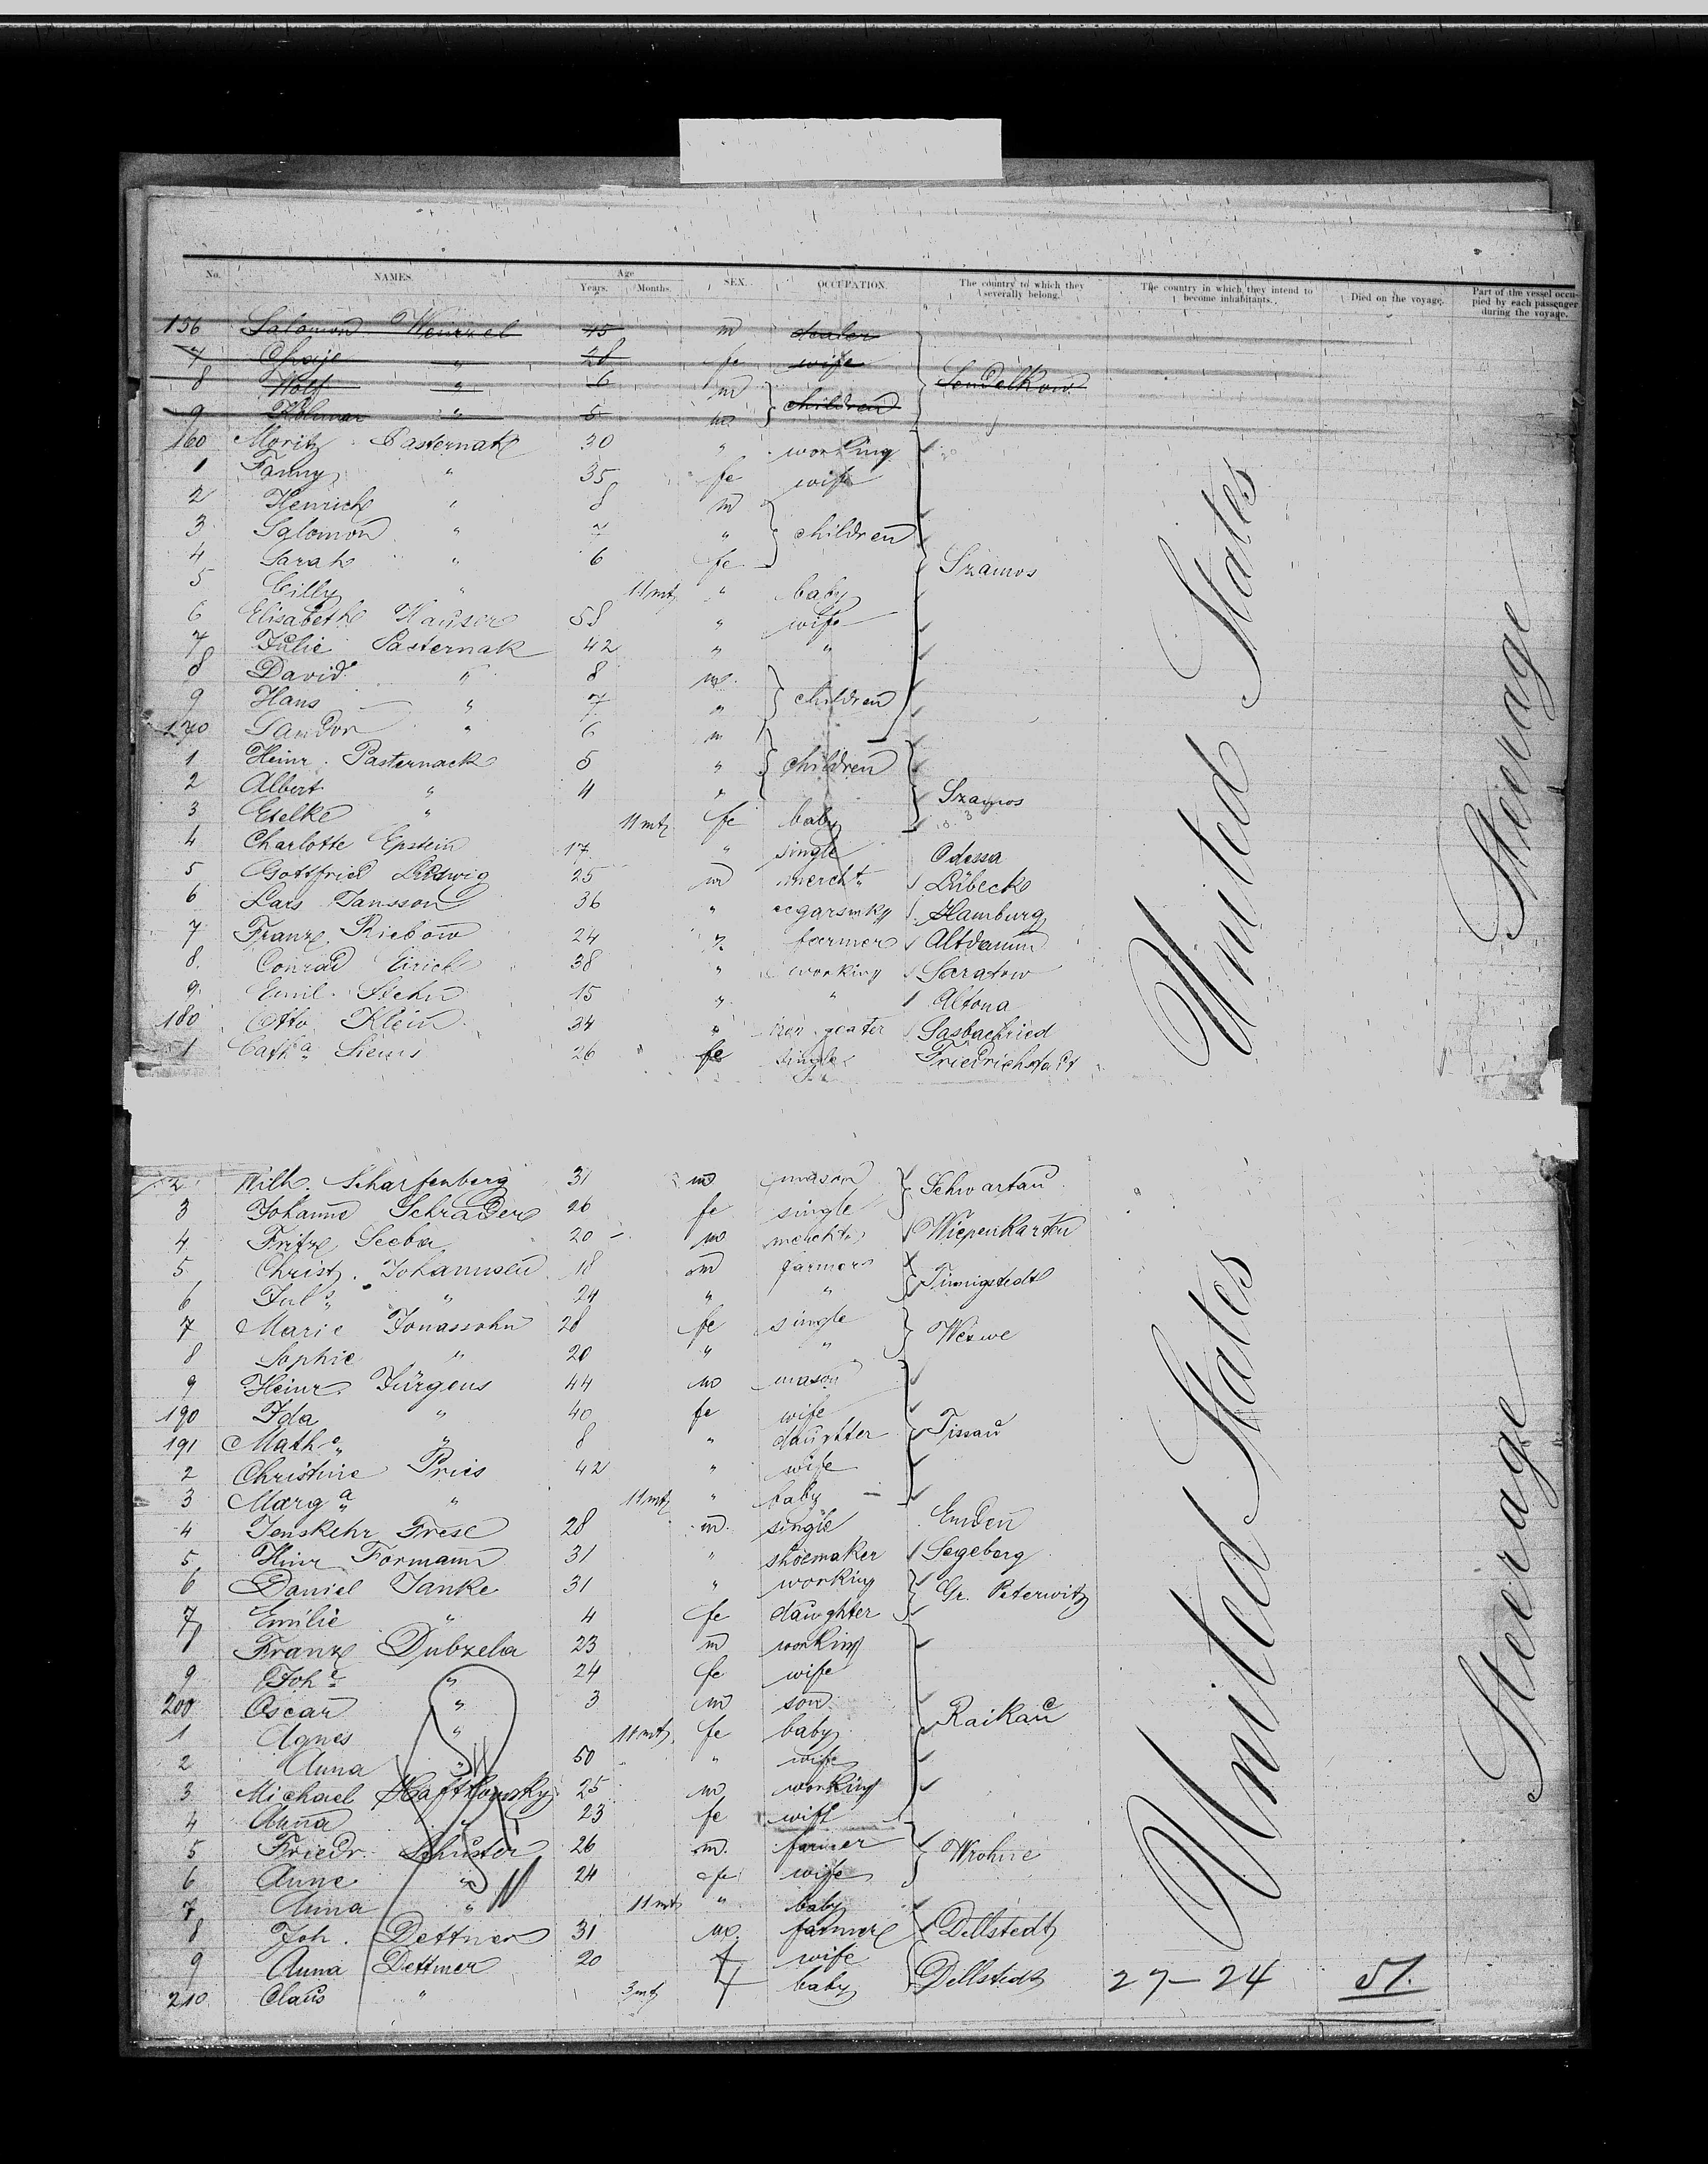 No. NAMES. Age Years. Months. SEX. OCCUPATION. The country to which they severally belong. The country in which they intend to become inhabitants. Died on the voyage. Part of the vessel occupied by each passenger during the voyage.
156 Salomon m dealer
7 Chaje " 28 fe wife
8 Wolf " 6 m children
9 " 5 m
160 Moritz Pasternak 30 " working
1 Fanny " 35 fe wife
2 Henrich " 8 m
3 Salomon " 7 " children
4 Sarah " 6 fe Szamos
5 Cilly " 11 mt " baby
6 Elisabeth Hauser 58 " wife
7 Julie Pasternak 42 " "
8 David " 8 m
9 Hans " 7 " children
170 Sandor " 6 "
1 Heinr. Pasternack 5 " children
2 Albert " 4 " Szamos
3 Etelke " 11 mt fe baby
4 Charlotte Epstein 17 " single Odessa
5 Gottfried Ludwig 25 m mercht Lübeck
6 Lars Jansson 36 " Hamburg
7 Franz Riebow 24 " farmer Altdamm
8 Conrad Eirich 38 " working Saratow
9 Emil Stehn 15 " " Altona
180 Otto Klein 34 " Sasbachried
1 Cath a Siems 26 fe single Friedrichstadt
United States Steerage
2 Wilh. Scharfenberg 31 m mason Schwartau
3 Johanne Schrader 26 fe single
4 Fritz Seeba 20 m mercht Wiepenkarten
5 Christ. Johannsen 18 m farmer Tinnigstedt
6 Jul s " 24 " "
7 Marie Jonassohn 28 fe single
8 Sophie " 20 " "
9 Heinr. Jürgens 44 m mason
190 Ida " 40 fe wife
191 Math e " 8 " daughter Tissau
2 Christine Pries 42 " wife
3 Marg a " 11 mt " baby
4 Frese 28 m single Emden
5 Hinr Formann 31 " shoemaker Segeberg
6 Daniel Janke 31 " working Gr. Peterwitz
7 Emilie " 4 fe daughter
8 Franz Dubzela 23 m working
9 Joh e " 24 fe wife
200 Oscar " 3 m son Raikau
1 Agnes " 11 mt fe baby
2 Anna " 50 " wife
3 Michael 25 m working
4 Anna " 23 fe wife
5 Friedr. Schuster 26 m. farmer Wrohne
6 Anne " 24 fe wife
7 Anna " 11 mt " baby
8 Joh. Dettmer 31 m farmer Dellstedt
9 Anna Dettmer 20 f wife Dellstedt 27-24 51.
210 Claus " 3 mt f baby
United States Steerage